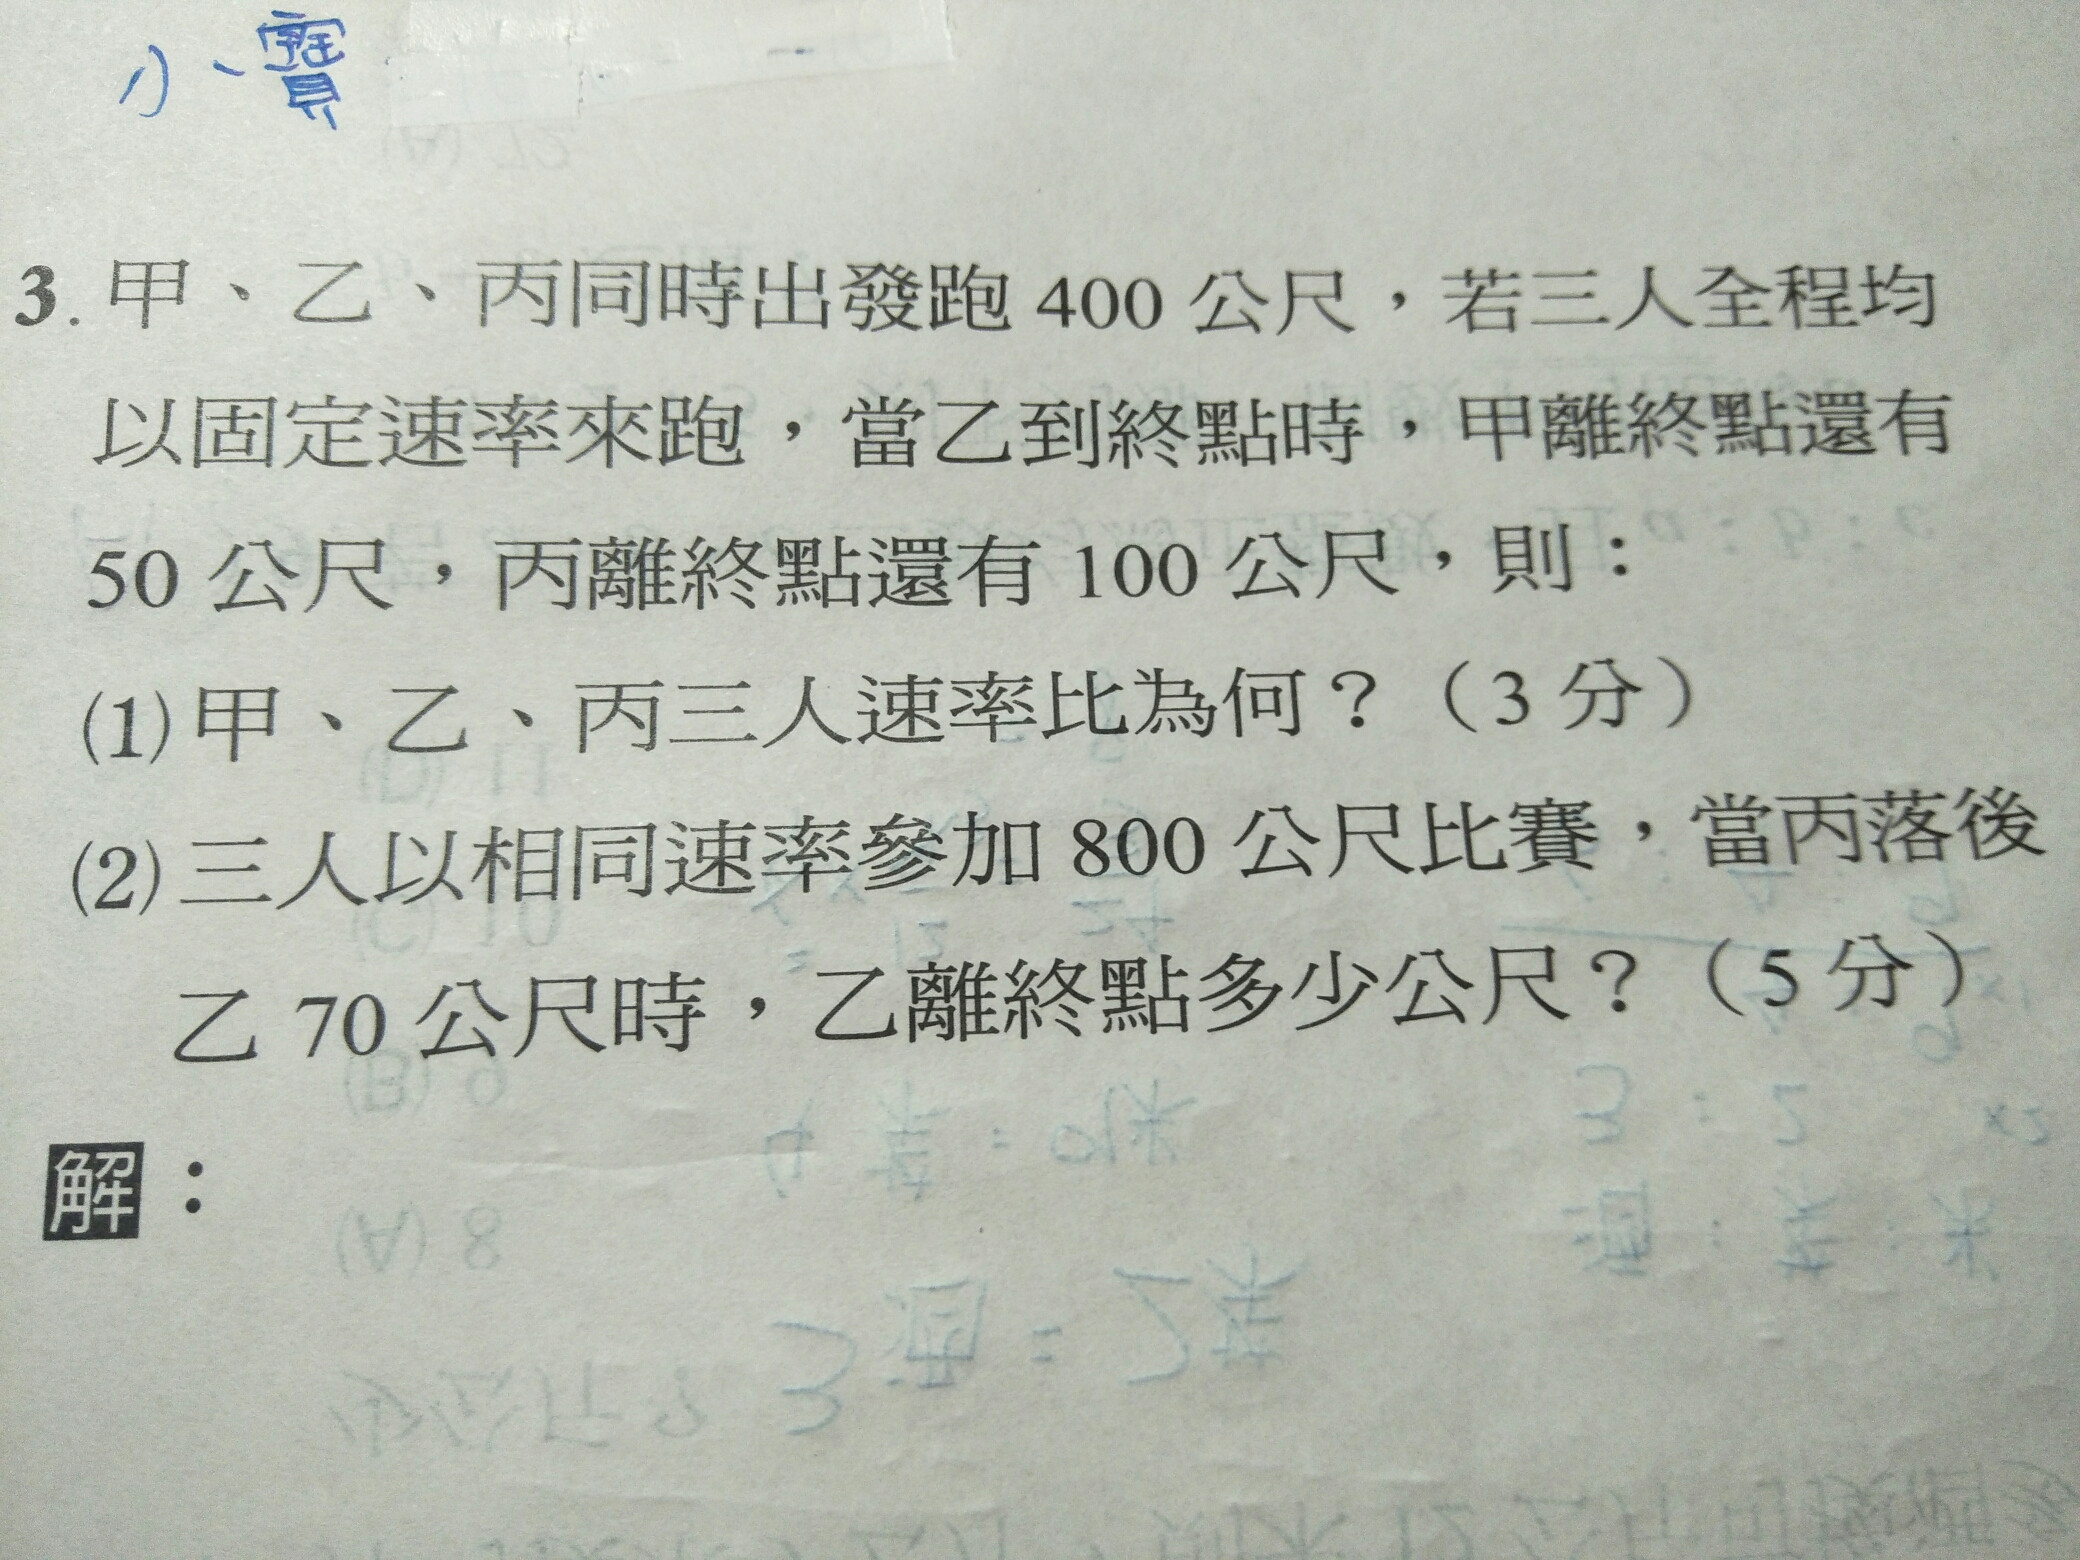 小寶
3. 甲、乙、丙同時出發跑 400 公尺，若三人全程均
以固定速率來跑，當乙到終點時，甲離終點還有
50 公尺，丙離終點還有 100 公尺，則：
(1) 甲、乙、丙三人速率比為何？（3 分）
(2) 三人以相同速率參加 800 公尺比賽，當丙落後
乙 70 公尺時，乙離終點多少公尺？（5 分）
解：